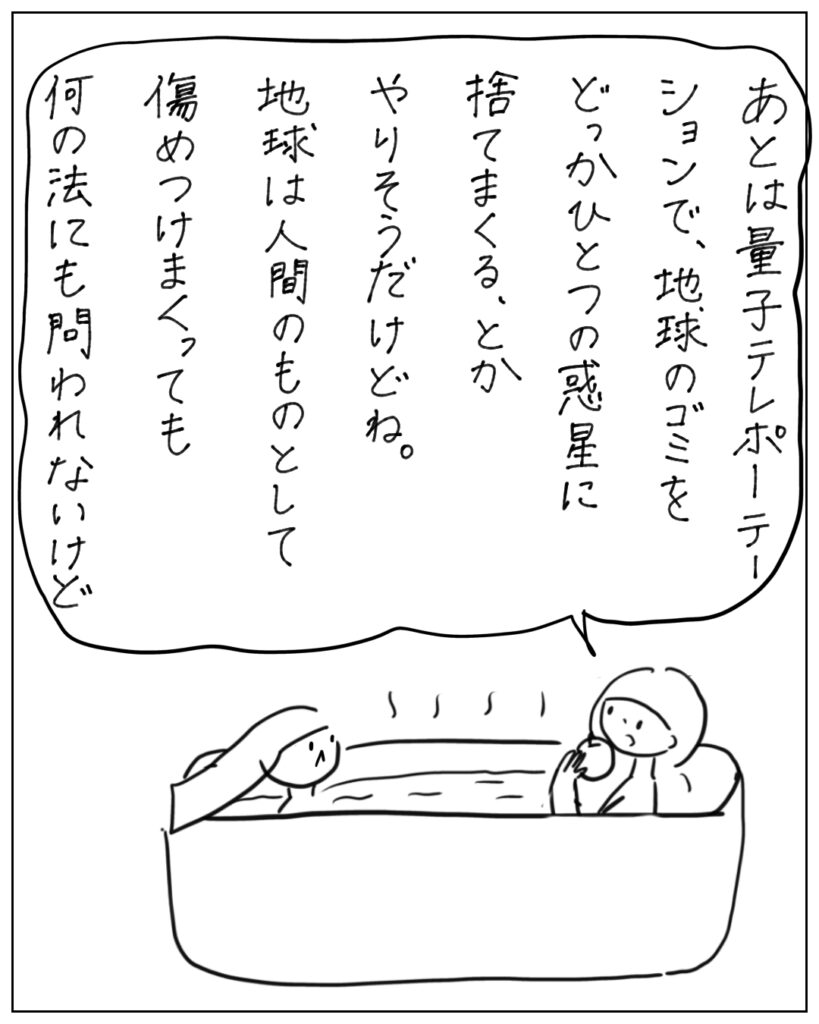 あとは量子テレポーテー
ションで、地球のゴミを
どっかひとつの惑星に
捨てまくる、とか
やりそうだけどね。
地球は人間のものとして
傷めつけまくっても
何の法にも問われないけど